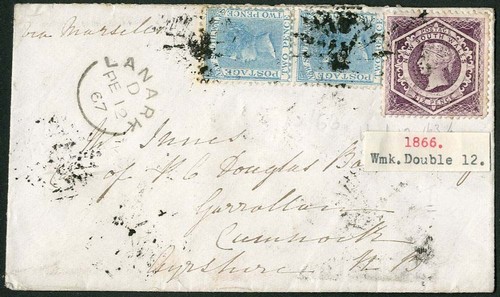 via Marseilles
POSTAGE
TWO PENCE
POSTAGE
POSTAGE
SOUTH
SIX PENCE
LANARK
D
FE 12
67
1866.
Wmk. Double 12.
Mr Innes
of Douglas
Garrallan
Cumnock
Ayrshire N B